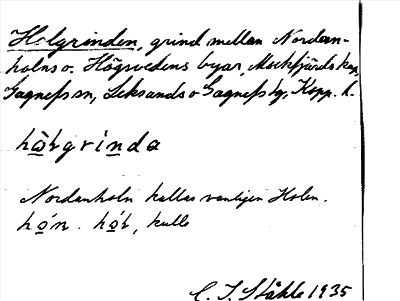 Holgrinden, grind mellan Nordan-
holns o. Högsvedens byar, Mockfjärds kap.
Gagnefs sn, Leksands o Gagnefs tg, Kopp. l.
hò̱lgrinda
Nordanholn kallas vanligen Holen.
hó̱n. hó̱l, kulle
C. I. Ståhle 1935